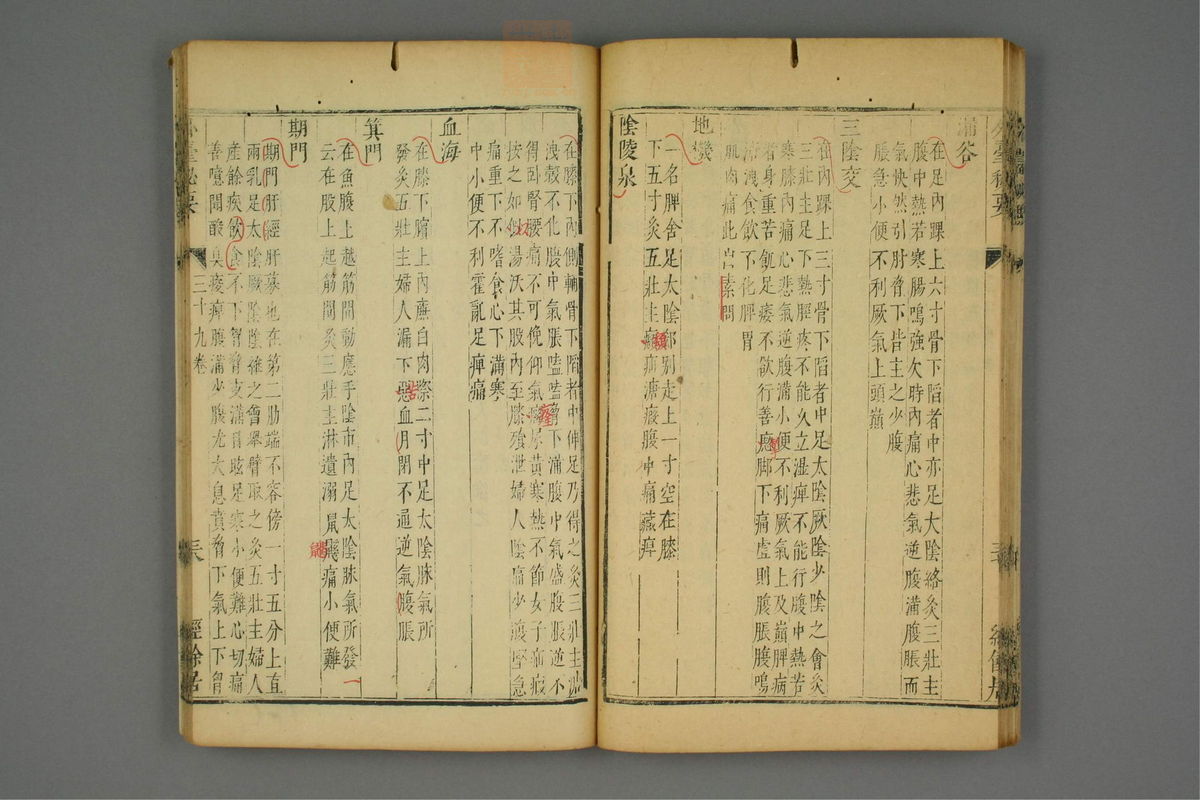 漏谷
在足內踝上六寸骨下陷者中亦足大陰絡灸三壯主
腹中熱若寒腸鳴強欠時內痛心悲氣逆腹滿腹脹而
氣快然引肘脅下皆主之少腹
脹急小便不利厥氣上頭巔
三陰交
在內踝上三寸骨下陷者中足太陰厥陰少陰之會灸
三壯主足下熱脛疼不能久立湿痺不能行腹中熱若
寒膝內痛心悲氣逆腹滿小便不利厥氣上及巔脾病
者身重苦飢足痿不欲行善瘛脚下痛虛則腹脹腹鳴
溏洩食飲不化脾胃
肌肉痛此出素問
地機
一名脾舍足太陰郄別走上一寸空在膝
下五寸灸五壯主㿗疝溏瘕腹中痛藏痺
陰陵泉
在膝下內側輔骨下陷者中伸足乃得之灸三壯主
洩穀不化腹中氣脹嗌嗌脅下滿腹中氣盛腹脹逆不
得卧腎腰痛不可俛仰氣癃尿黃寒熱不節女子疝瘕
按之如以湯沃其股內至膝飱泄婦人陰痛少腹堅急
痛重下不嗜食心下滿寒
中小便不利霍亂足痺痛
血海
在膝下臏上內廉白肉際二寸中足太陰脉氣所
發灸五壯主婦人漏下惡血月閉不通逆氣腹脹
箕門
在魚腹上越筋間動應手陰市內足太陰脉氣所發
云在股上起筋間灸三壯主淋遺溺鼠鼷痛小便難
期門
期門肝經肝募也在第二肋端不容傍一寸五分上直
兩乳足太陰厥陰陰維之會舉臂取之灸五壯主婦人
產餘疾飲食不下胷脅支滿目眩足寒小便難心切痛
善噫聞酸臭痠痺腹滿少腹尤大息賁脅下氣上下胷
外臺秘要
三十九卷
經餘居